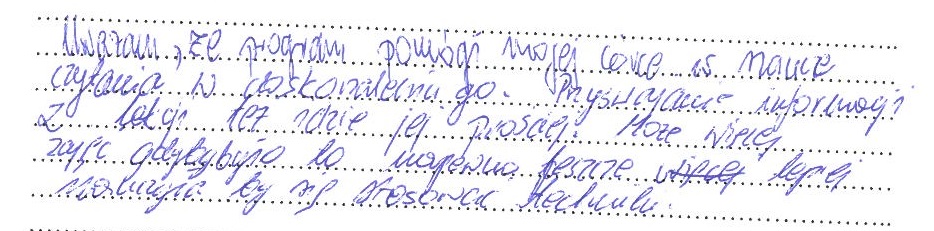 Uważam, że program pomógł mojej córce w nauce
czytania i w doskonaleniu go. Przyswajanie informacji
z lekcji też idzie jej prościej. Może więcej
zajęć gdyby było to napewno jeszcze więcej lepiej
nauczyła by się stosować techniki.